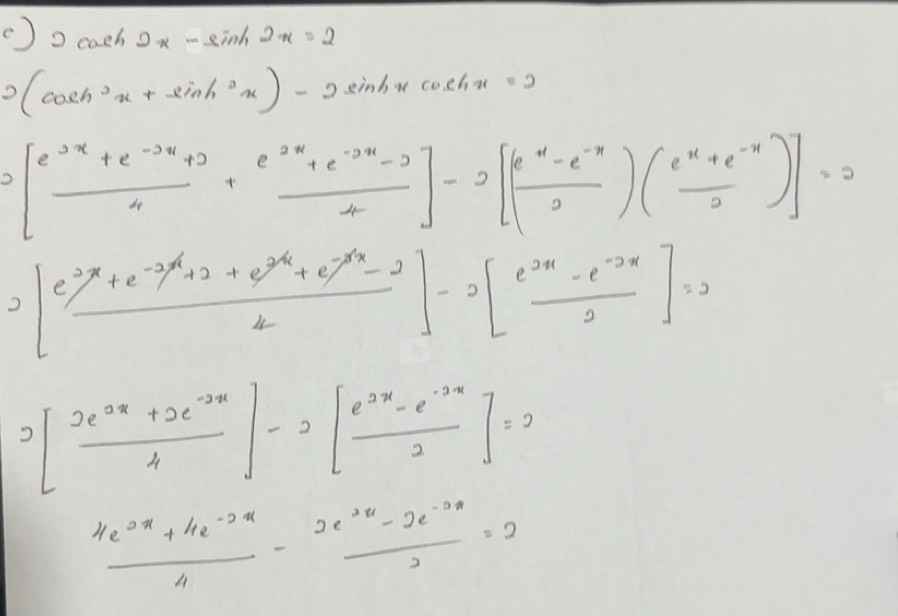 c) 2 cosh 2x - sinh 2x = 2
2(cosh²x + sinh²x) - 2 sinh x cosh x = 2
2[(e^{2x} + e^{-2x} + 2)/4 + (e^{2x} + e^{-2x} - 2)/4] - 2[((e^x - e^{-x})/2)((e^x + e^{-x})/2)] = 2
2[(e^{2x} + e^{-2x} + 2 + e^{2x} + e^{-2x} - 2)/4] - 2[(e^{2x} - e^{-2x})/2] = 2
2[(2e^{2x} + 2e^{-2x})/4] - 2[(e^{2x} - e^{-2x})/2] = 2
(4e^{2x} + 4e^{-2x})/4 - (2e^{2x} - 2e^{-2x})/2 = 2